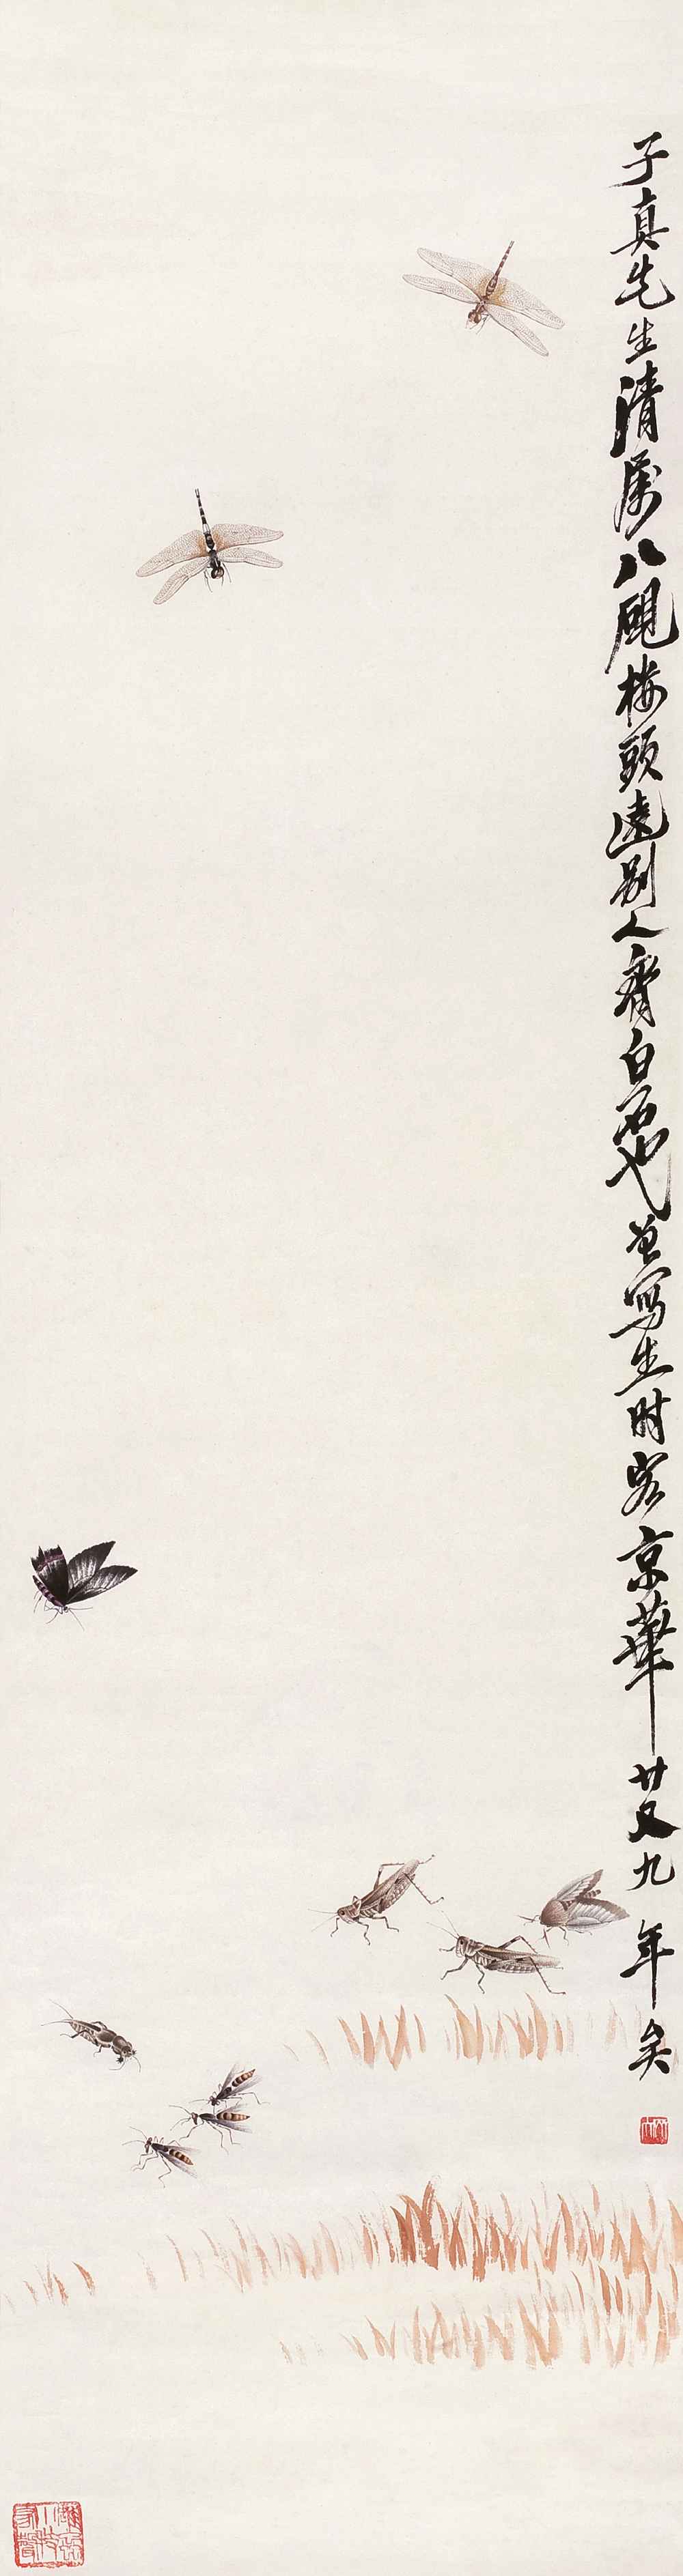 子真先生清属八砚楼头远别人齊白石也並寫生时客京華廿又九年矣